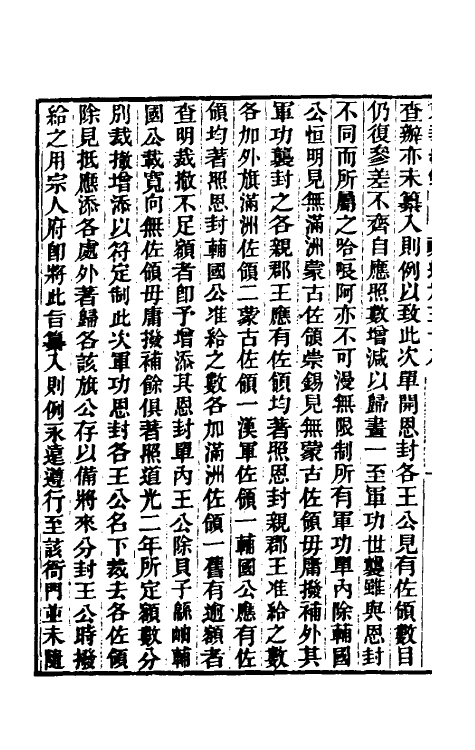 查辦亦未纂入則例以致此次單開恩封各王公見有佐領數目
仍復參差不齊自應照數增減以歸畫一至軍功世襲雖與恩封
不同而所屬之哈哏阿亦不可漫無限制所有軍功單內除輔國
公恒明見無滿洲蒙古佐領崇錫見無蒙古佐領毋庸撥補外其
軍功襲封之各親郡王應有佐領均著照恩封親郡王准給之數
各加外旗滿洲佐領二蒙古佐領一漢軍佐領一輔國公應有佐
領均著照恩封輔國公准給之數各加滿洲佐領一舊有逾額者
查明裁撤不足額者卽予增添其恩封單內王公除貝子緜岫輔
國公載寬向無佐領毋庸撥補餘俱著照道光二年所定額數分
別裁撤增添以符定制此次軍功恩封各王公名下裁去各佐領
除見抵應添各處外著歸各該旗公存以備將來分封王公時撥
給之用宗人府卽將此旨纂入則例永遠遵行至該衙門並未隨